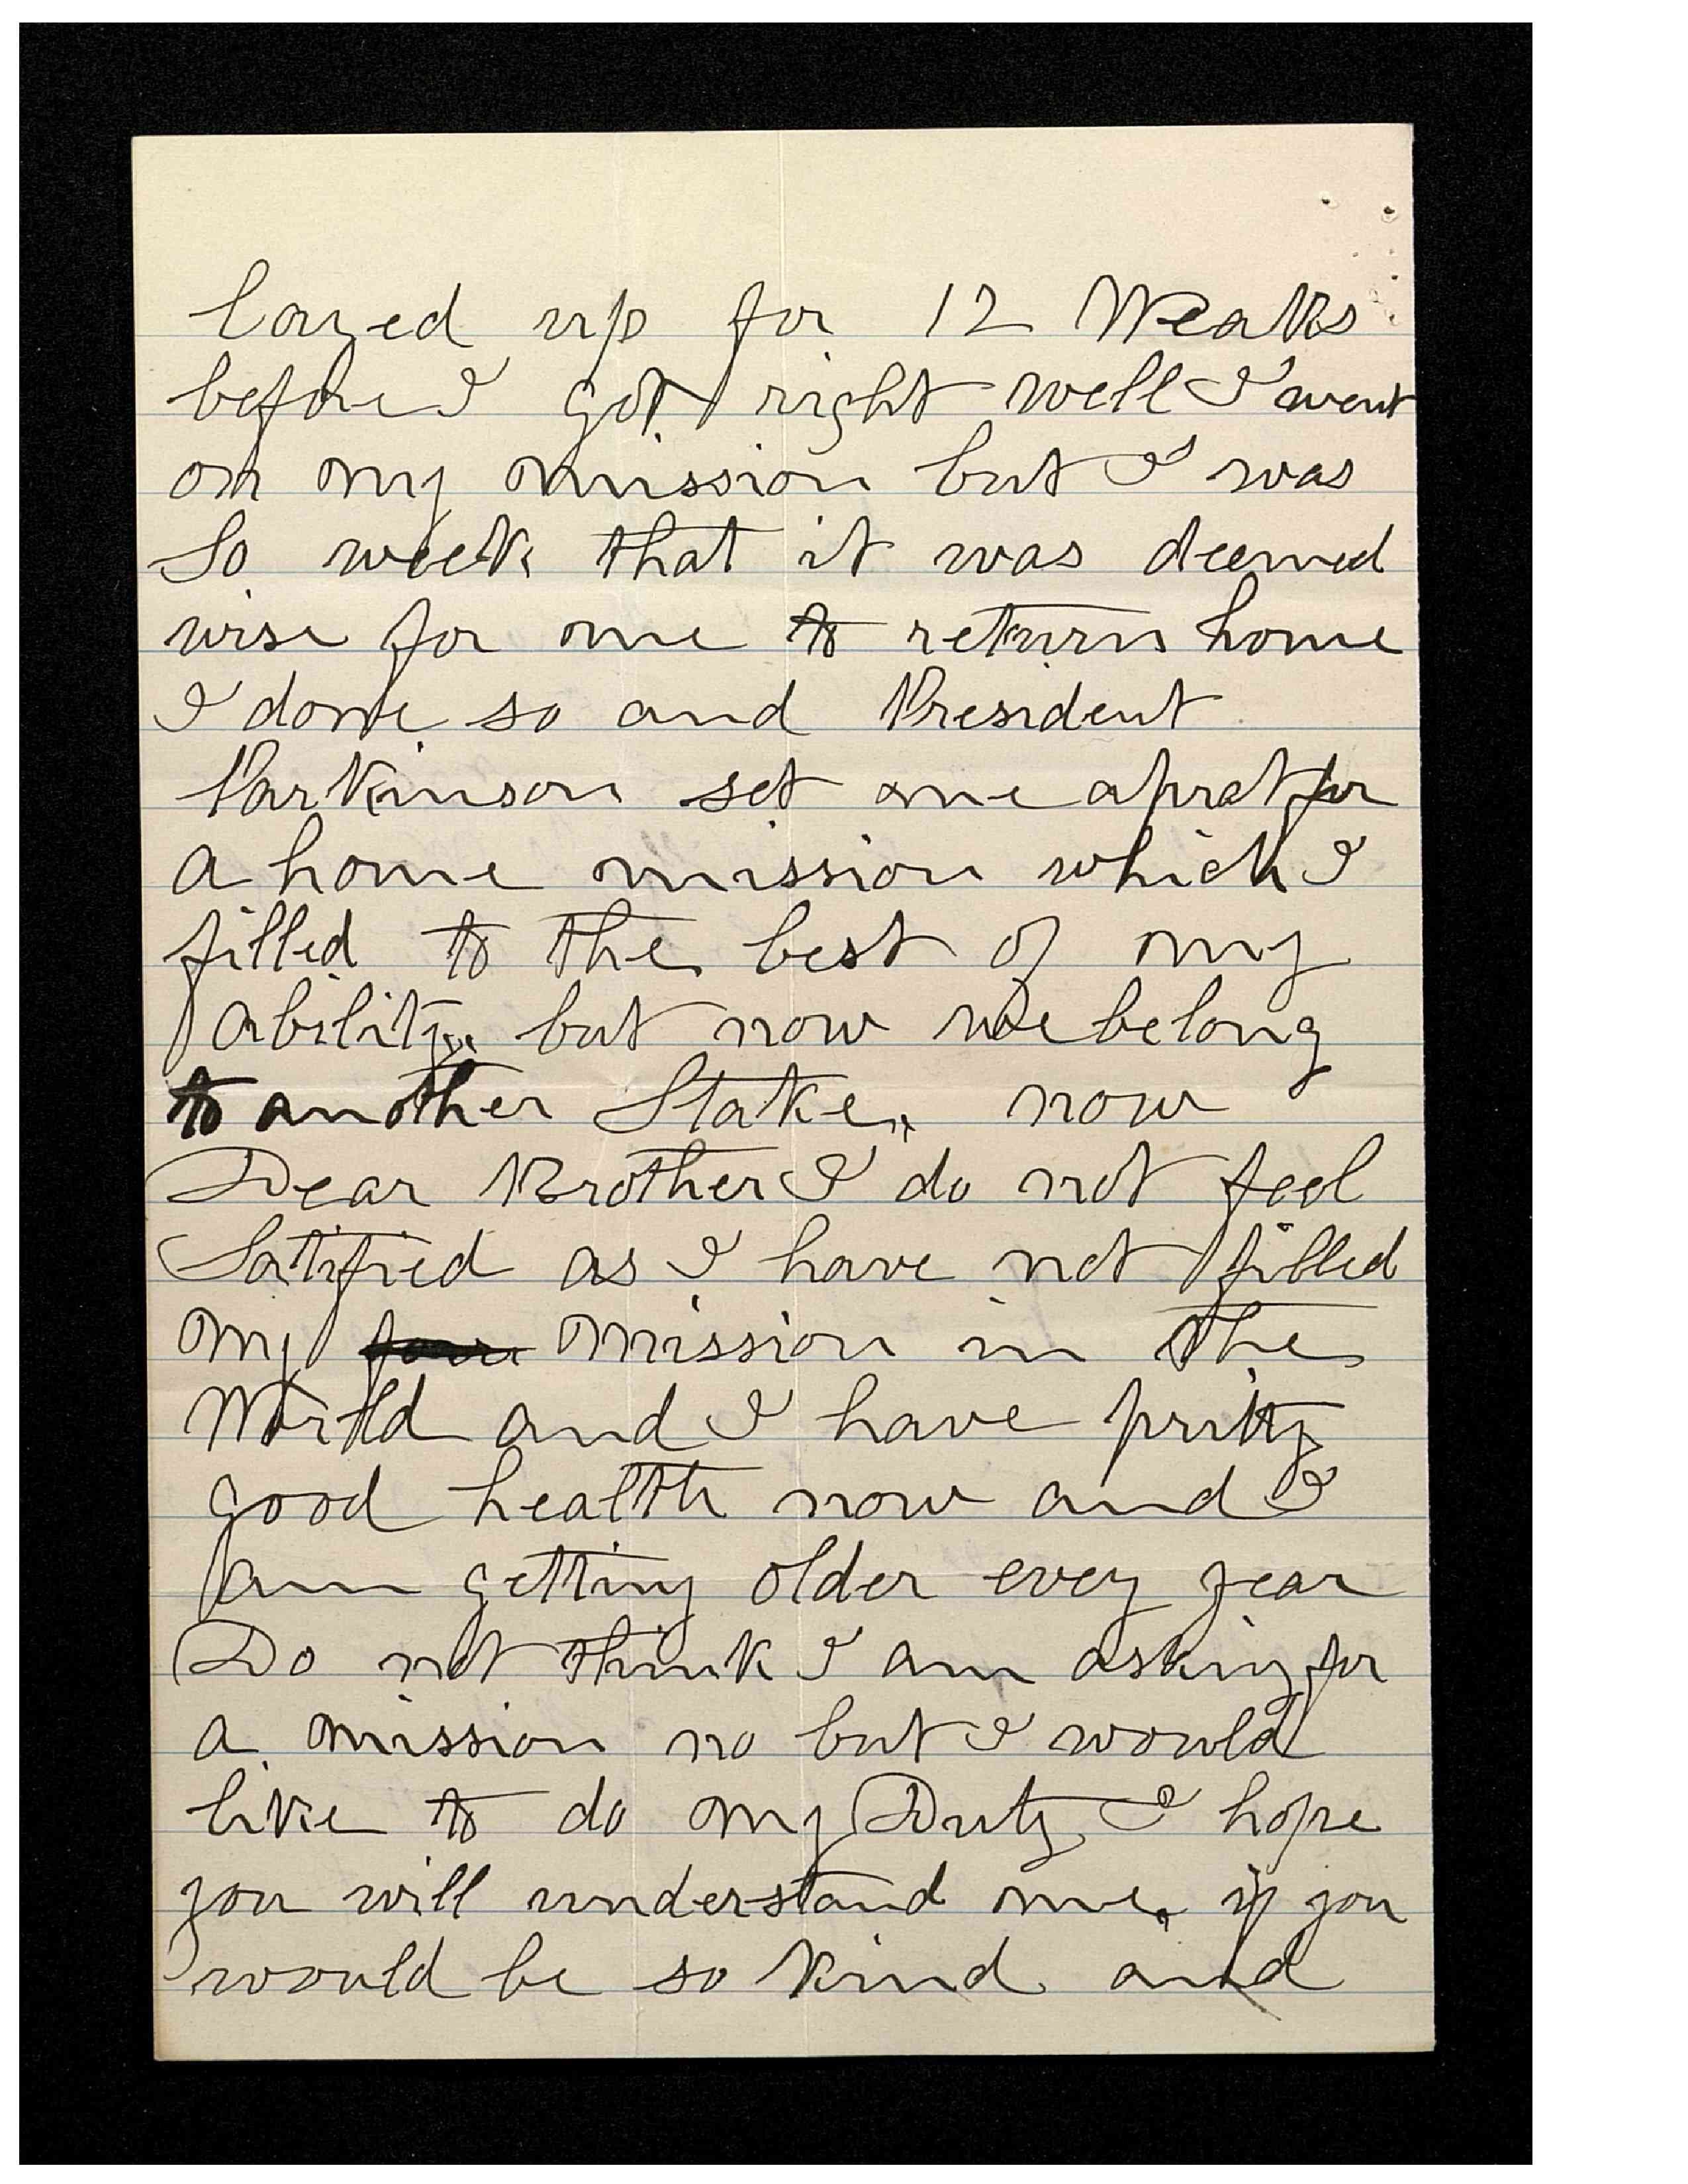 layed up for 12 Weaks
before I got right well I went
on my mission but I was
So week that it was deemed
wise for me to return home
I done so and President
Parkinson set me aprat for
a home mission which I
filled to the best of my
ability, but now we belong
to another Stake, now
Dear Brother I do not feel
Satified as I have not filled
my mission in the
World and I have pritty
good health now and I
am getting older evey year
Do not think I am asking for
a mission no but I would
like to do my Duty I hope
you will understand me, if you
would be so kind and